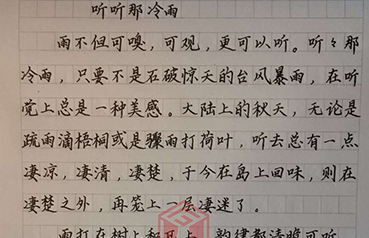 听听那冷雨
雨不但可嗅，可观，更可以听。听々那
冷雨，只要不是石破惊天的台风暴雨，在听
觉上总是一种美感。大陆上的秋天，无论是
疏雨滴梧桐或是骤雨打荷叶，听去总有一点
凄凉，凄清，凄楚，于今在岛上回味，则在
凄楚之外，再笼上一层凄迷了。
雨打在树上和瓦上，韵律都清脆可听。